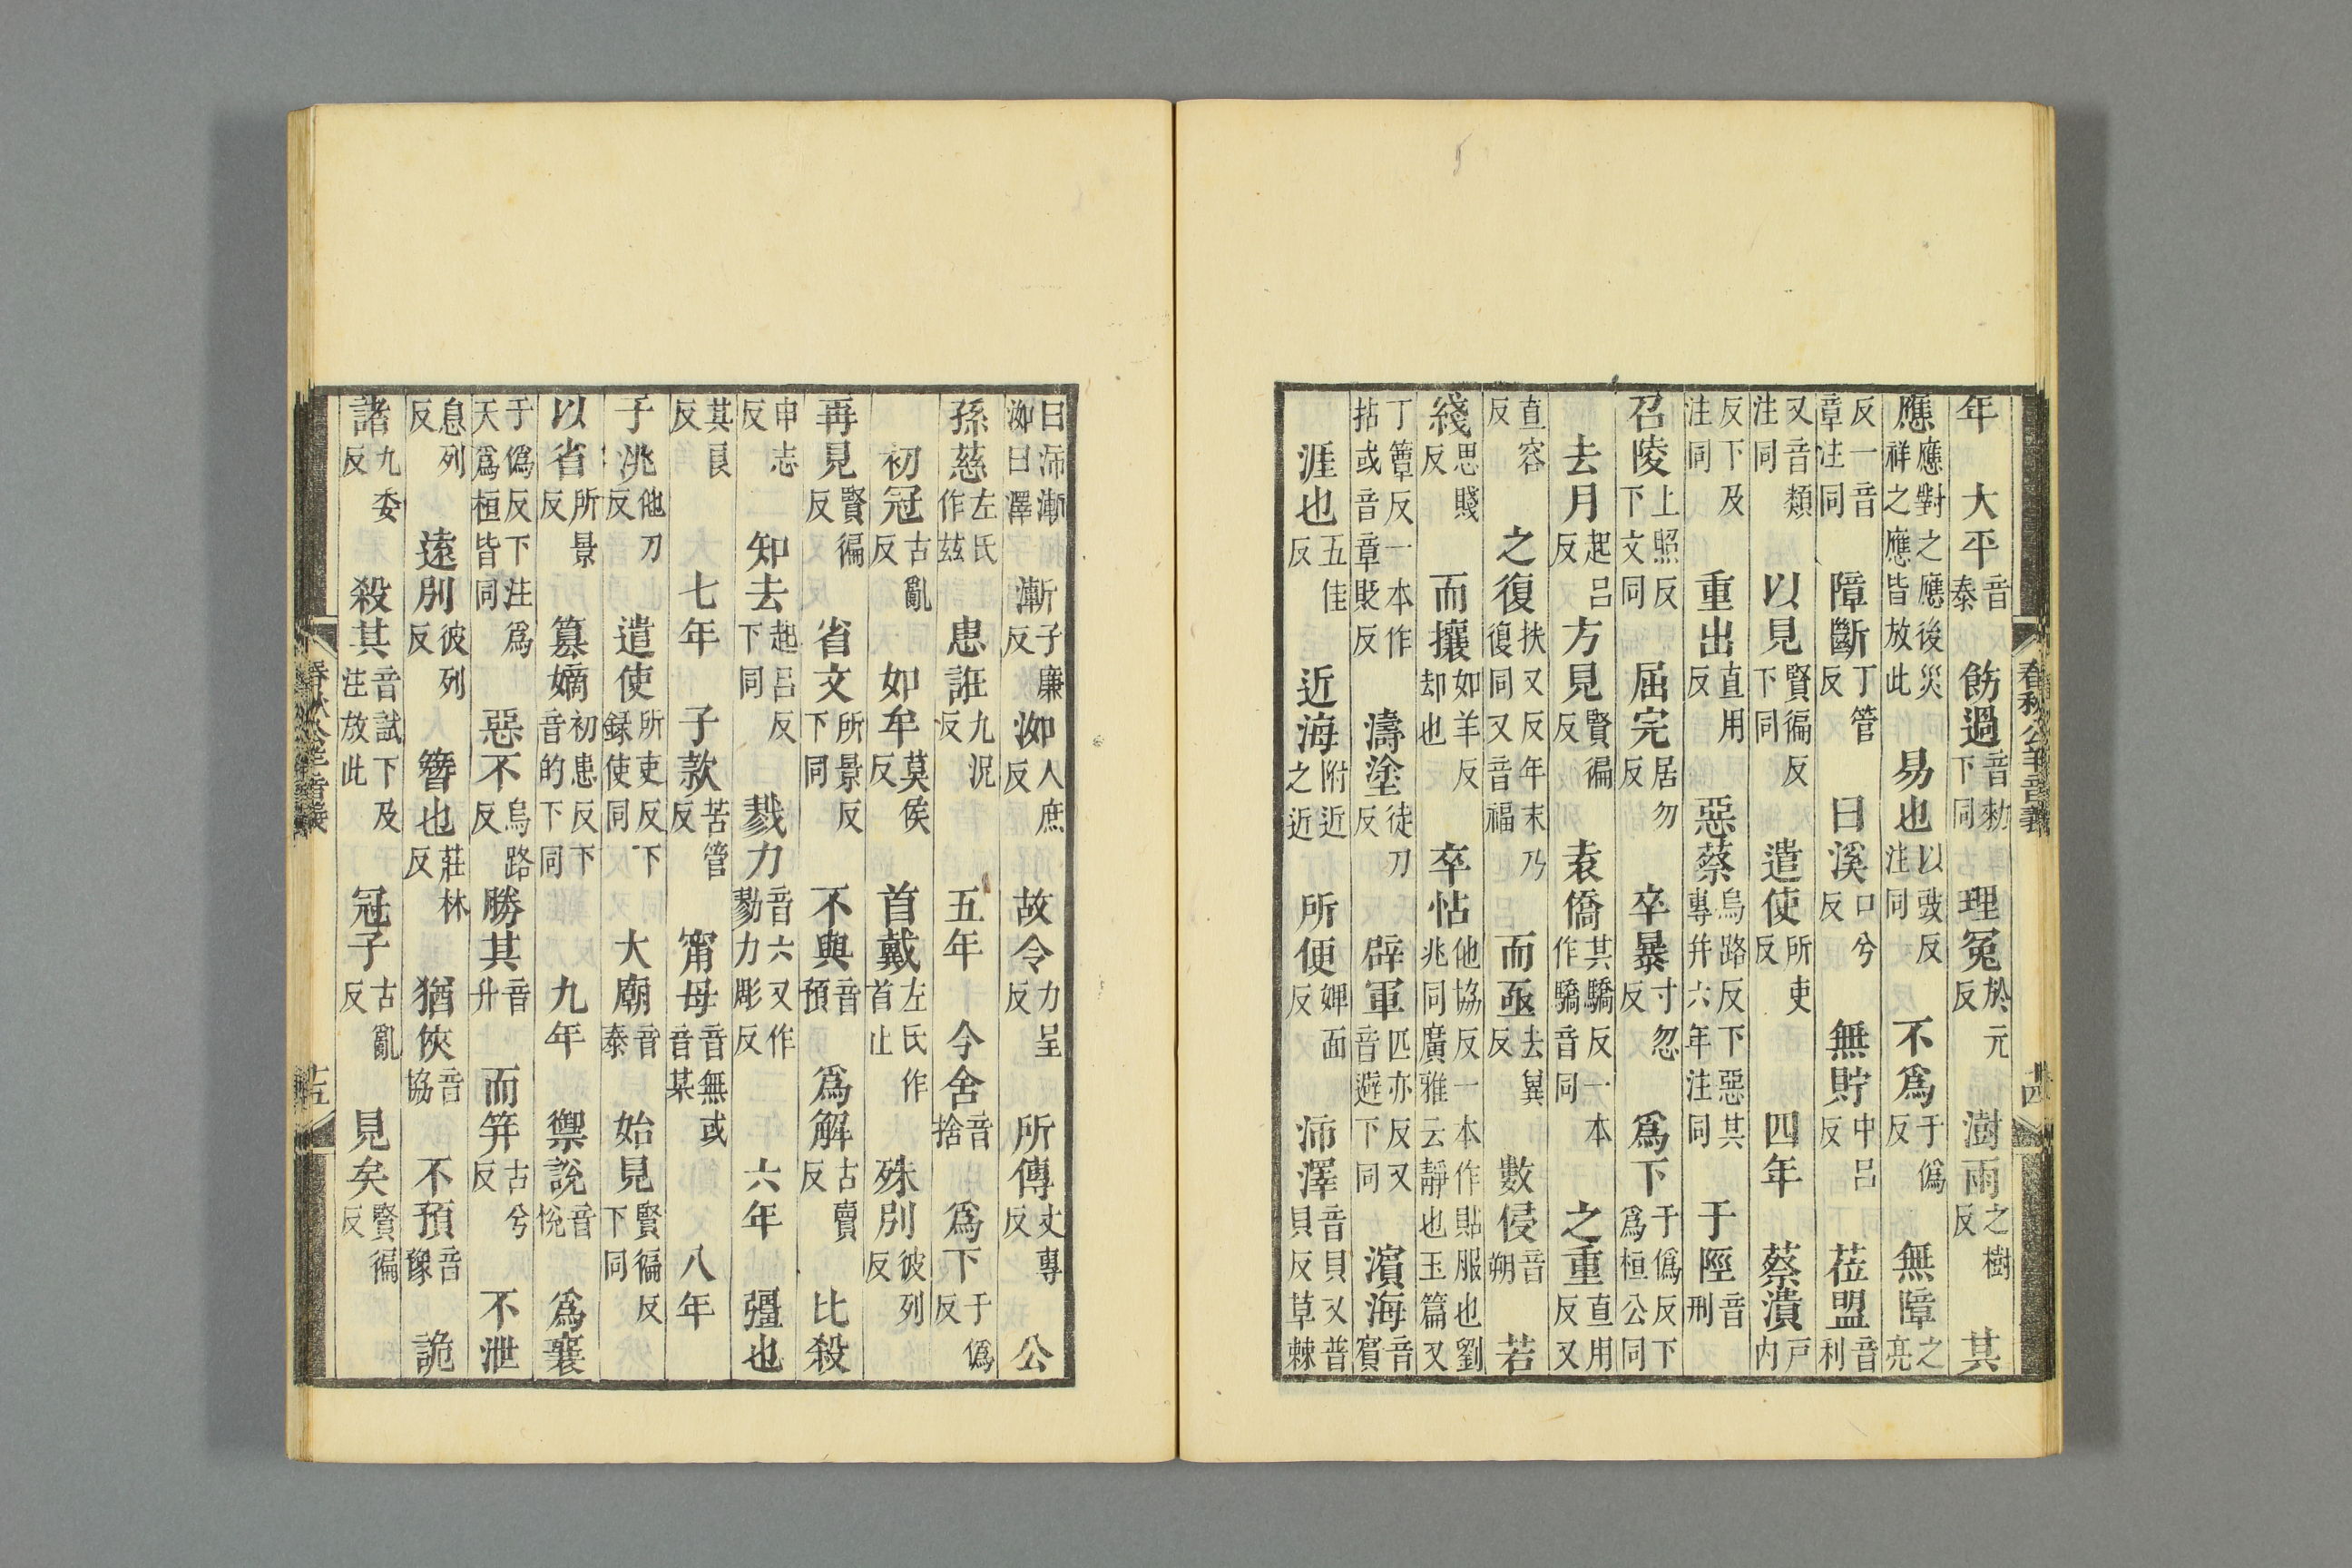 春秋公羊音義
年 大平音泰 飭過音勑下同 理冤於元反 澍雨之樹反 其
應應對之應後災祥之應皆放此 易也以豉反注同 不爲于僞反 無障之亮
反一音章注同 障斷丁管反 曰溪口兮反 無貯中呂反 莅盟音利
又音類注同 以見賢徧反下同 遣使所吏反 四年 蔡潰戶內
反下及注同 重出直用反 惡蔡烏路反下惡其專并六年注同 于陘音刑
召陵上照反下文同 屈完居勿反 卒暴寸忽反 爲下于僞反下爲桓公同
去月起呂反 方見賢徧反 袁僑其驕反一本作驕音同 之重直用反又
直容反 之復扶又反年末乃復同又音福 而亟去異反 數侵音朔 若
綫思賤反 而攘如羊反却也 卒怗他協反一本作貼服也劉兆同廣雅云靜也玉篇又
丁簟反一本作拈或音章貶反 濤塗徒刀反 辟軍匹亦反又音避下同 濱海音賓
涯也五佳反 近海附近之近 所便婢面反 沛澤音貝又普貝反草棘
曰沛漸洳曰澤 漸子廉反 洳人庶反 故令力呈反 所傳丈專反 公
孫慈左氏作茲 患誑九況反 五年 今舍音捨 爲下于僞反
初冠古亂反 如牟莫侯反 首戴左氏作首止 殊別彼列反
再見賢徧反 省文所景反下同 不與音預 爲解古賣反 比殺
申志反 知去起呂反下同 戮力音六又作勠力彫反 六年 彊也
其良反 七年 子款苦管反 甯母音無或音某 八年
于洮他刀反 遣使所吏反下錄使同 大廟音泰 始見賢徧反下同
以省所景反 篡嫡初患反下音的下同 九年 禦說音悅 爲襄
于僞反下注爲天爲桓皆同 惡不烏路反 勝其音升 而笄古兮反 不泄
息列反 遠別彼列反 簪也莊林反 猶俠音協 不預音豫 詭
諸九委反 殺其音試下及注放此 冠子古亂反 見矣賢徧反